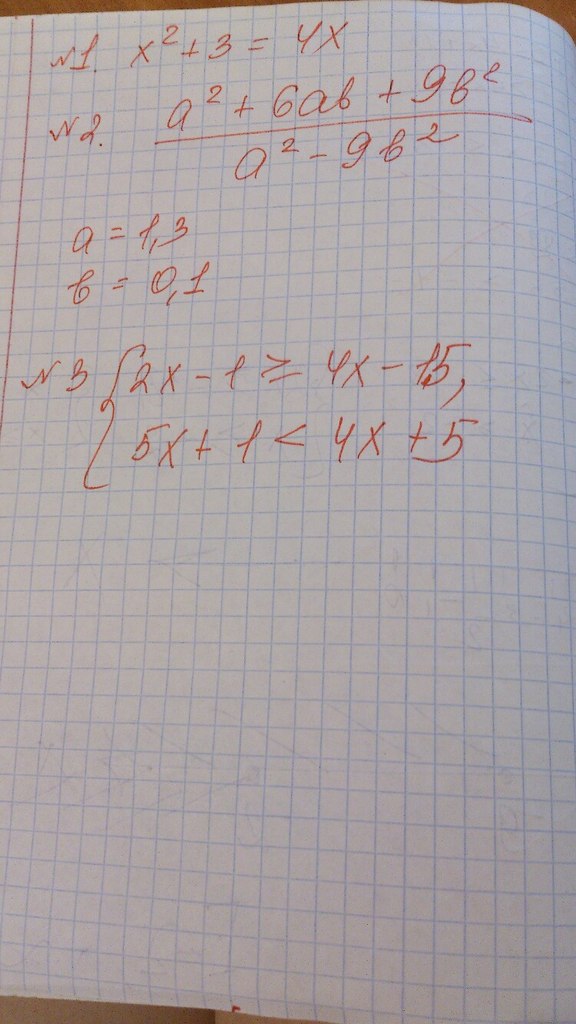 №1. x² + 3 = 4x
№2. (a² + 6ab + 9b²) / (a² - 9b²)
a = 1,3
b = 0,1
№3 { 2x - 1 ≥ 4x - 15,
5x + 1 < 4x + 5